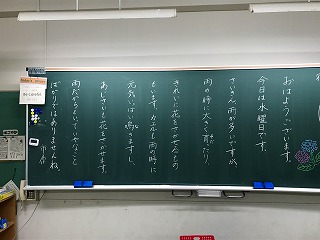 おはようございます。
今日は水曜日です。
さいきん、雨が多いですが、
雨の時に大きく育ったり、
きれいに花をさかせたりするもの
もいます。カエルも雨の時に
元気いっぱい鳴きますし、
あじさいも花をさかせます。
雨だからといっていやなこと
ばかりではありませんね。